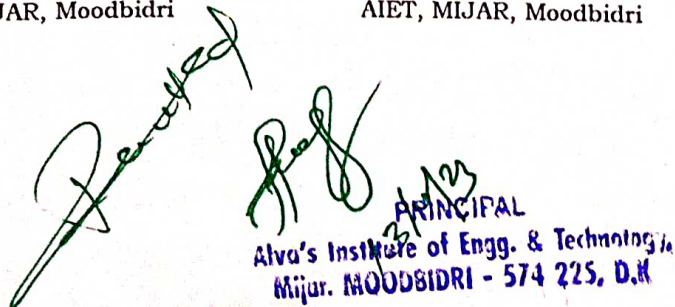 JAR, Moodbidri
AIET, MIJAR, Moodbidri
PRINCIPAL
Alva's Institute of Engg. & Technology,
Mijar. MOODBIDRI - 574 225, D.K